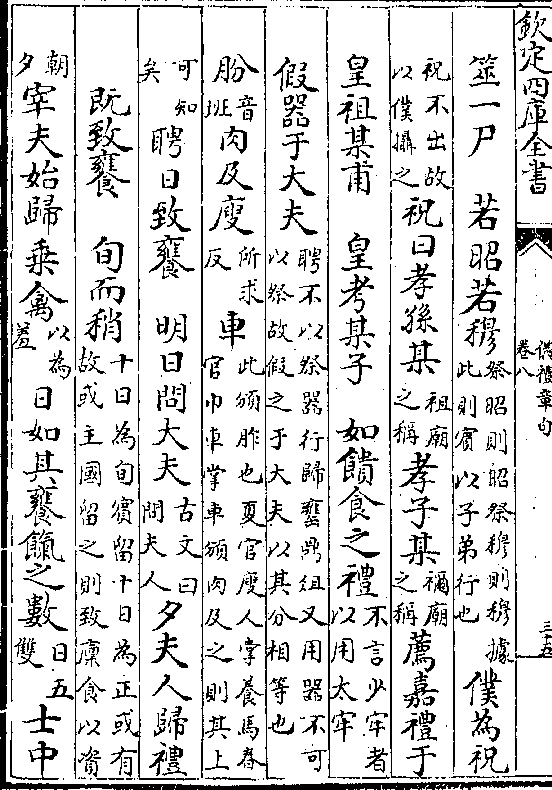 欽定四庫全書
儀禮章句
卷八
三五
筮一尸　若昭若穆祭昭則昭祭穆則穆據此則賓以子弟行也僕為祝
祝不出故以僕攝之祝曰孝孫某祖廟之稱孝子某禰廟之稱薦嘉禮于
皇祖某甫　皇考某子　如饋食之禮不言少牢者以用太牢
假器于大夫聘不以祭器行歸饔鼎俎又用器不可以祭故假之于大夫以其分相等也
肦音班肉及廋所求反車此頒胙也夏官廋人掌養馬春官巾車掌車頒肉及之則其上
可知矣聘日致饔　明日問大夫古文曰問夫人夕夫人歸禮
既致饔　旬而稍十日為旬賓留十日為正或有故或主國留之則致稟食以資
朝夕宰夫始歸乗禽以為羞日如其饔餼之數日五雙士中